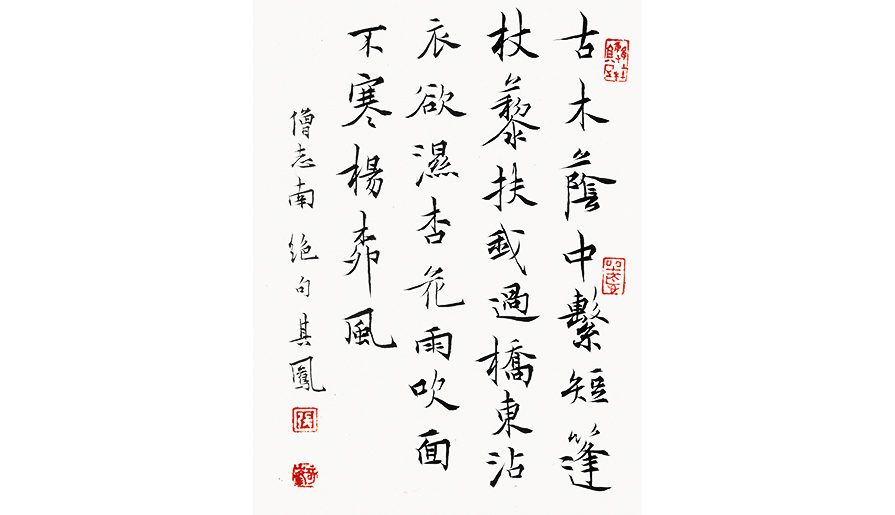 古木蔭中繫短篷
杖藜扶我過橋東沾
衣欲濕杏花雨吹面
不寒楊桺風
僧志南 絕句 其鳳